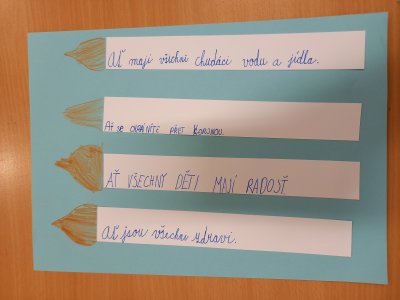 Ať mají všichni chudáci vodu a jídla.
AŤ SE CHRÁNÍTE PŘET KORUNOU.
AŤ VŠECHNY DĚTI MAJÍ RADOST
Ať jsou všichni zdraví.